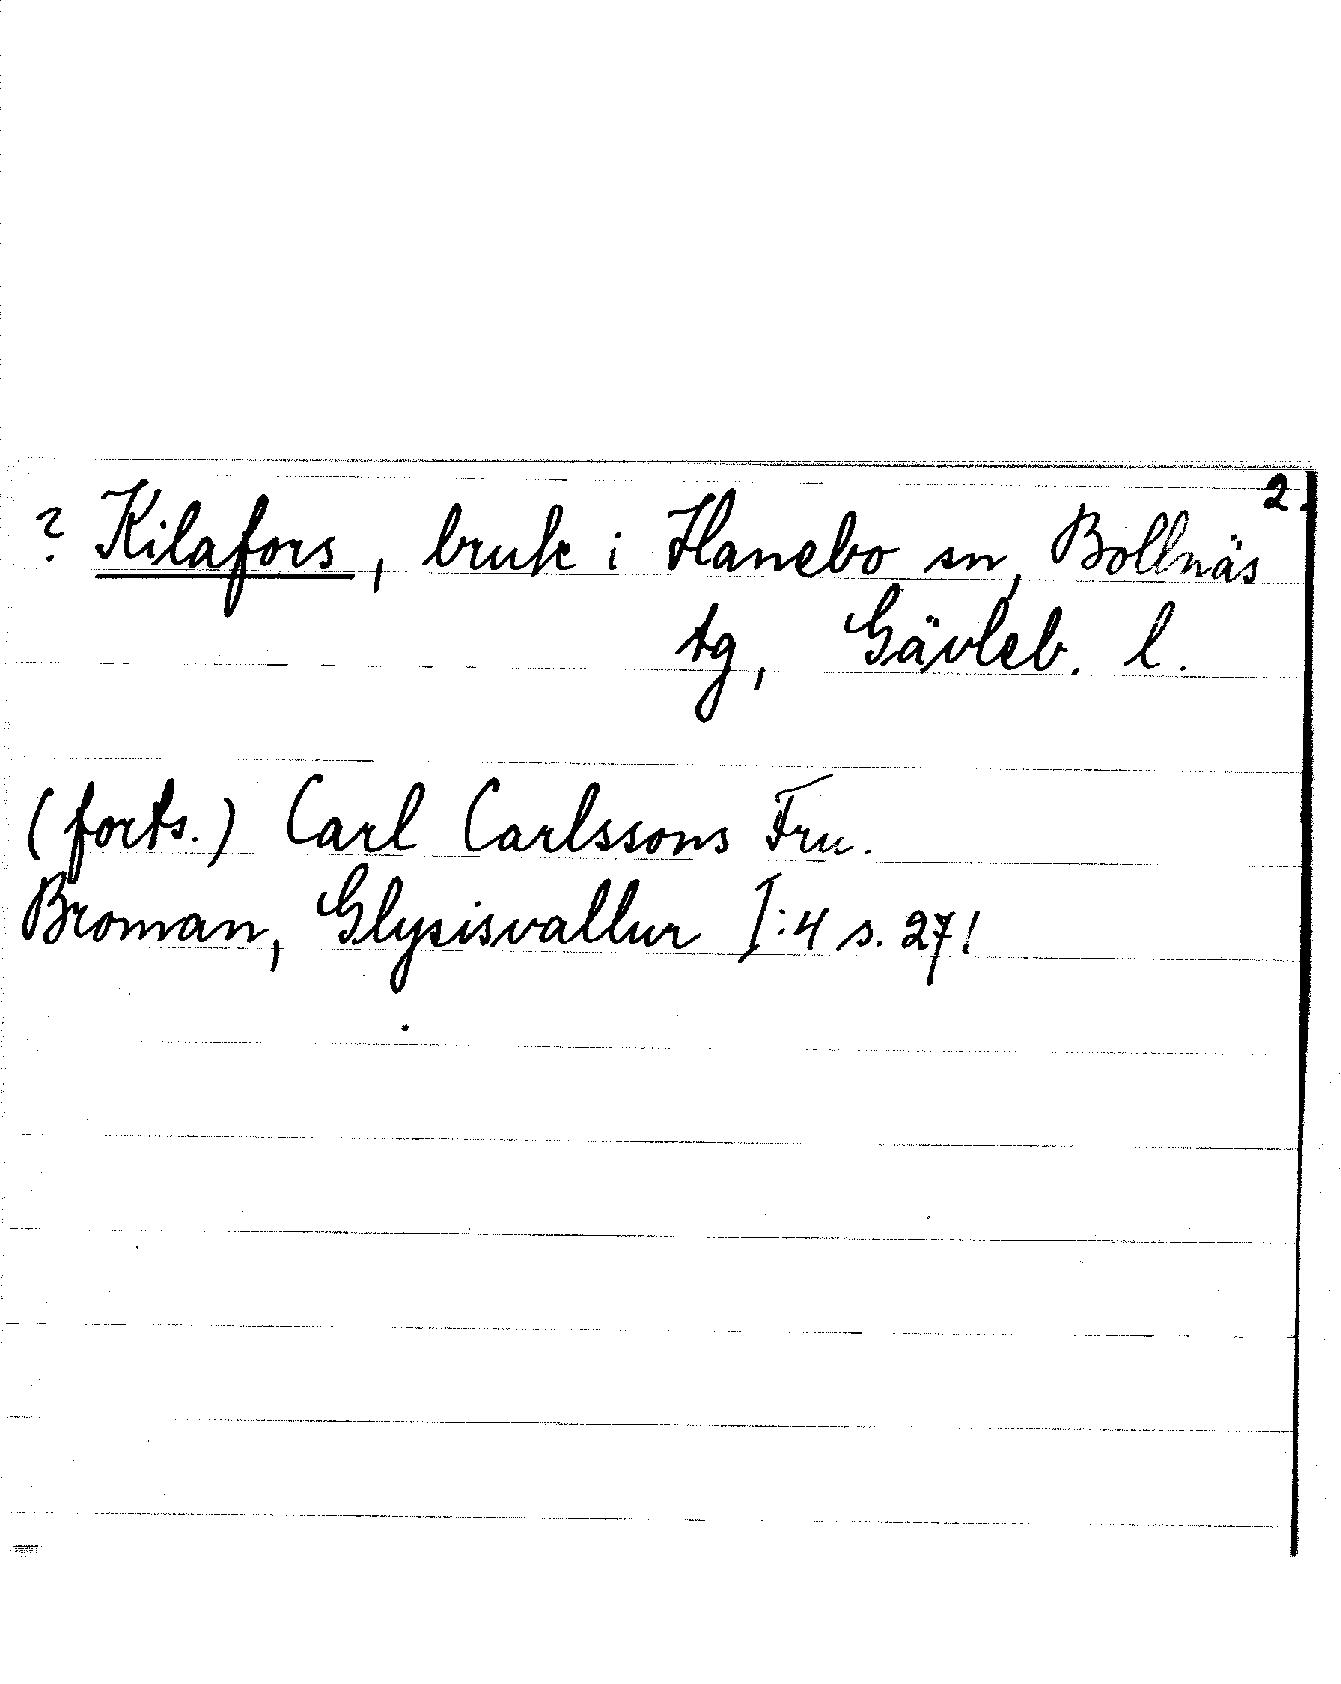 2.
? Kilafors, bruk i Hanebo sn, Bollnäs
tg, Gävleb. l.
(forts.) Carl Carlssons Fru.
Broman, Glysisvallur I:4 s. 271